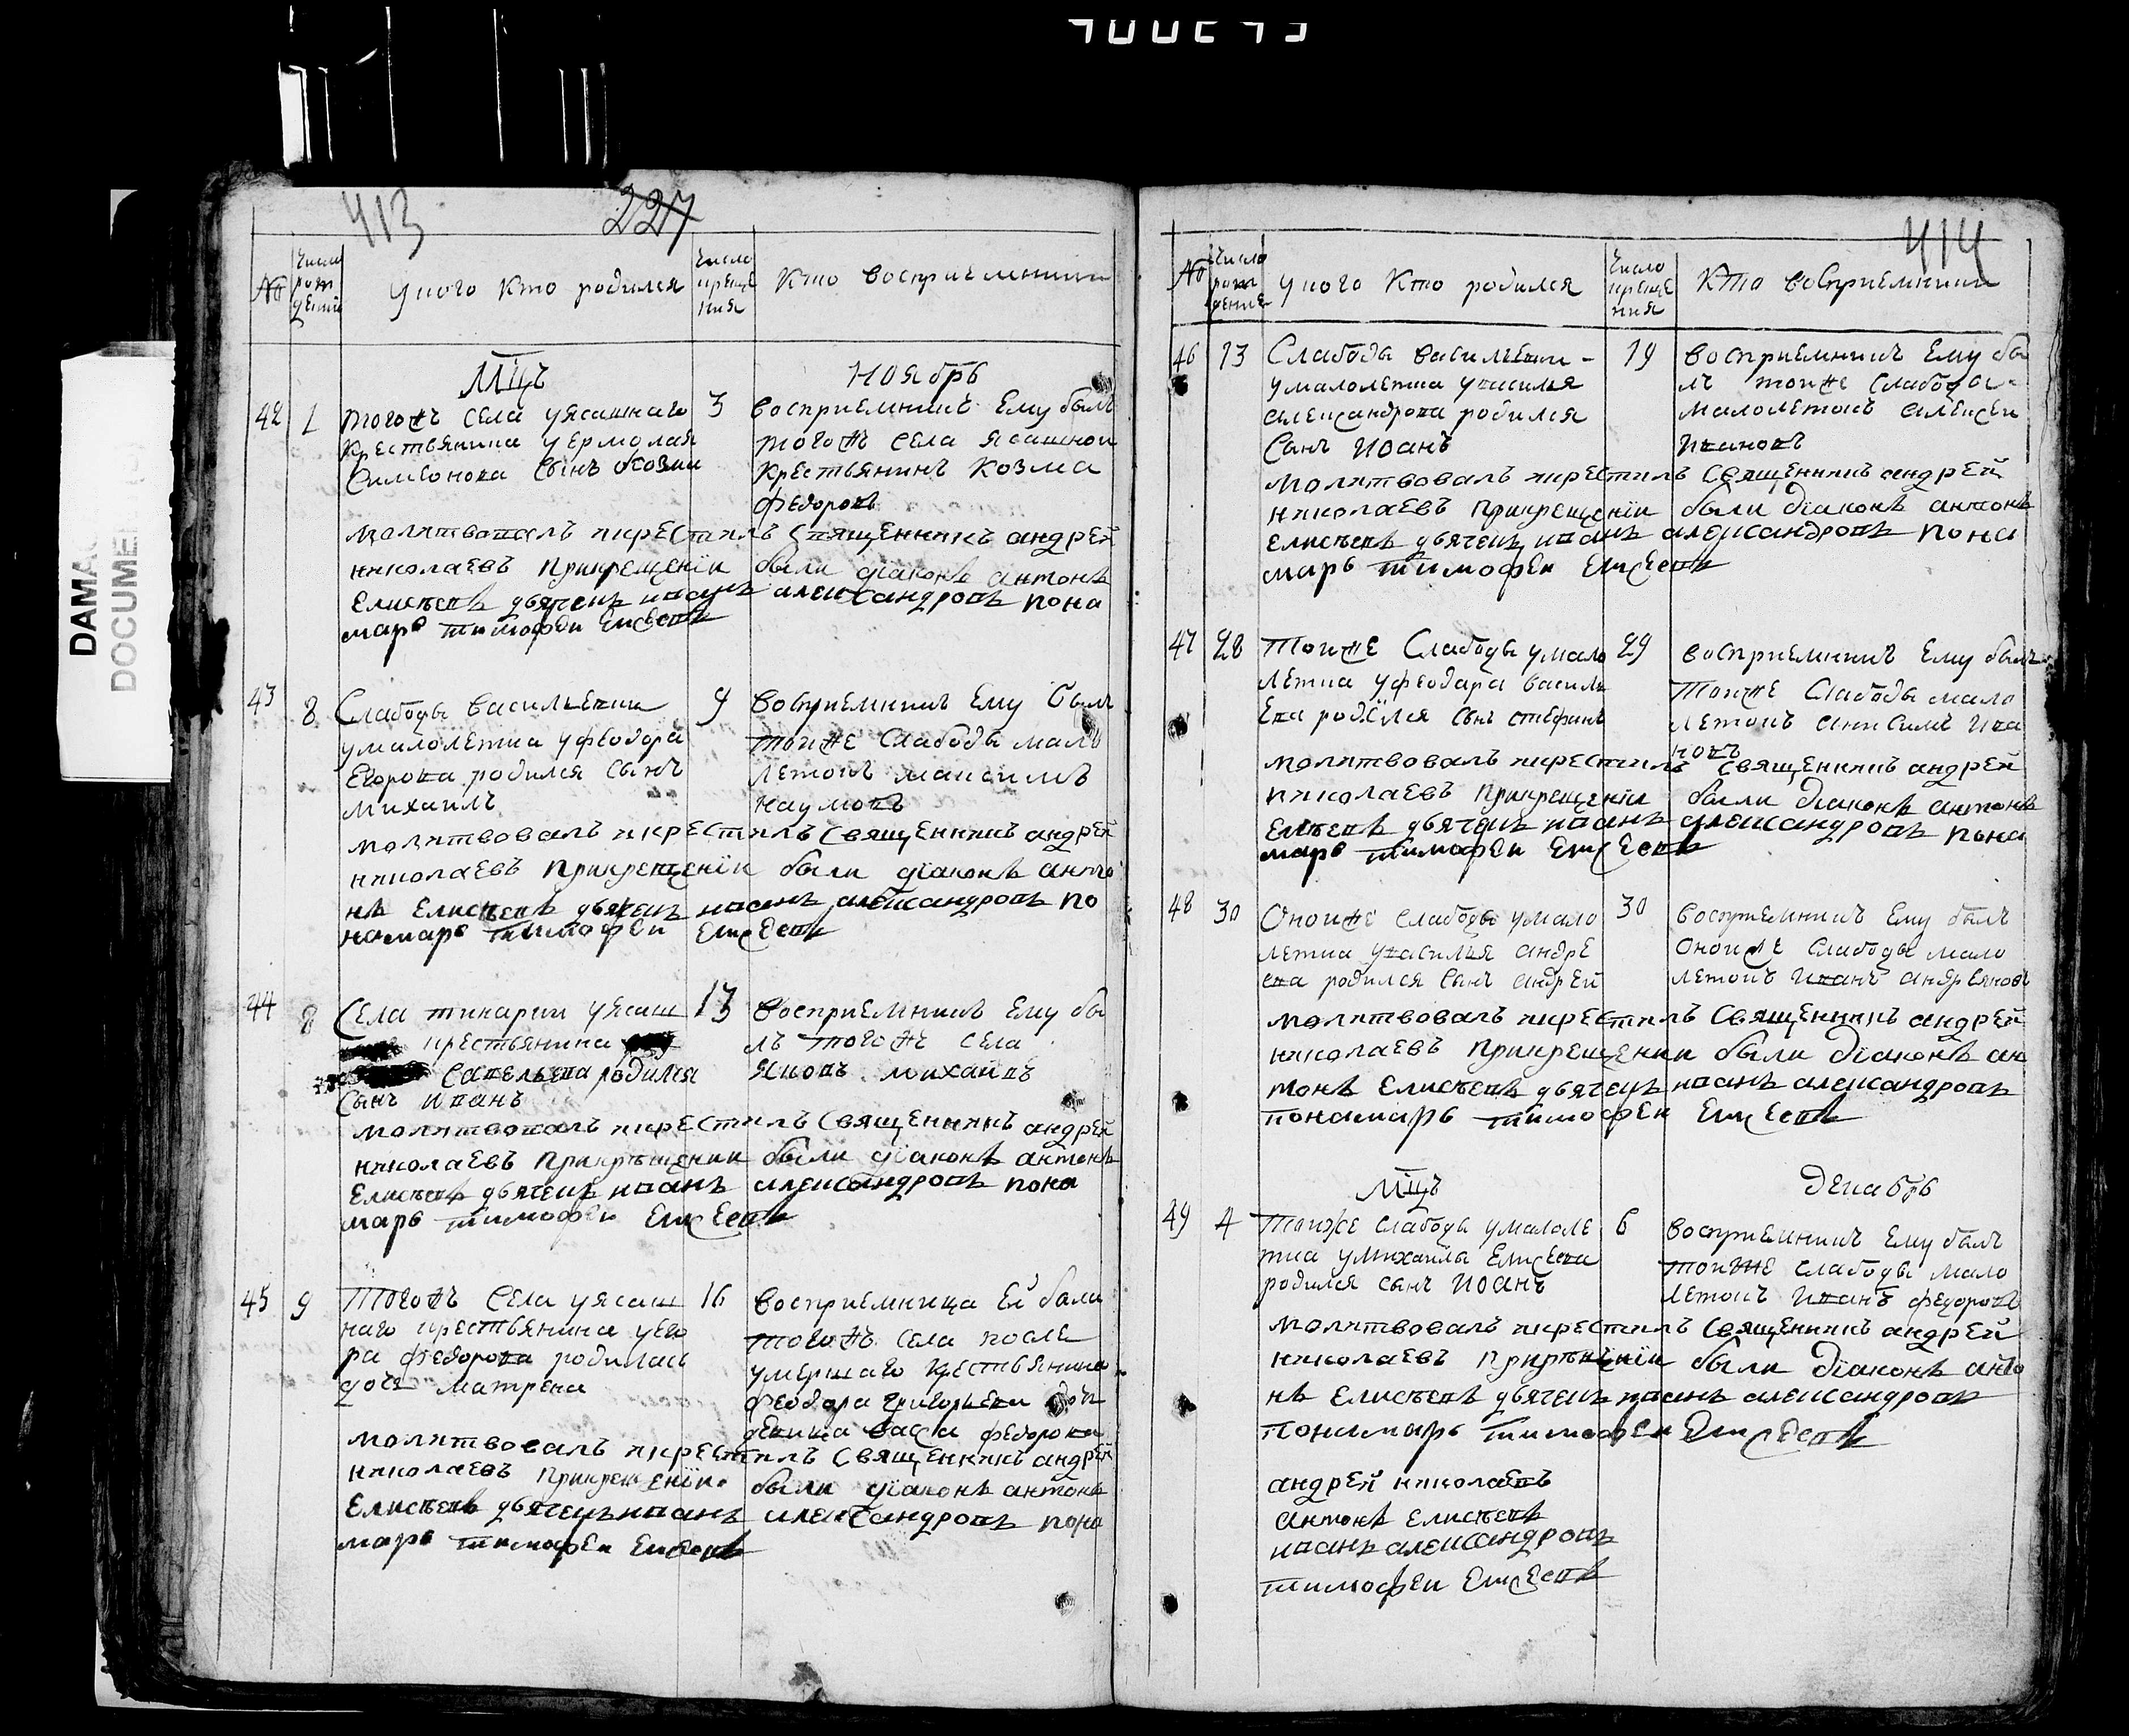 413
227
№
Число рождений
У кого кто родился
Число крещения
Кто восприемники
Мцъ
Ноябрь
42
1
3
тогожъ села уясашнаго
крестьянина уермолая
Симеонова сынъ
восприемникъ ему былъ
тогожъ села ясашной
крестьянинъ козма
федоровъ
молитвовалъ икрестилъ священникъ андрей
николаевъ прикрещенiи были дiаконъ антонъ
Елисѣевъ дьячекъ иванъ александровъ пона
марь тимофеи Елисеевъ
43
8
9
Слабоды васильевки
умалолетка уфеодора
Егорова родился сынъ
михаилъ
восприемникъ ему былъ
тоиже слабоды мало
летокъ максимъ
наумовъ
молитвовалъ икрестилъ священникъ андрей
николаевъ прикрещенiи были дiаконъ анто
нъ Елисѣевъ дьячекъ иванъ александровъ по
номарь тимофеи Елисеевъ
44
8
13
Села уясаш
крестьянина
савельева родился
сынъ иванъ
восприемникъ ему бы
лъ тогожъ села
яковъ
молитвовалъ икрестилъ священникъ андрей
николаевъ прикрѣщении были дiаконъ антонъ
Елисѣевъ дьячекъ иванъ александровъ пона
марь тимофеи Елисеевъ
45
9
16
Тогожъ села уясаш
наго крестьянина уего
ра федорова родилась
дочь матрена
восприемница ей была
тогожъ села после
умершаго крестьянина
феодора григорьева
девица васса федорова
молитвовалъ икрестилъ священникъ андрей
николаевъ прикрещенiи были дiаконъ антонъ
Елисѣевъ дьячекъ иванъ александровъ пона
марь тимофеи Елисеевъ
414
№
Число рождение
У кого кто родился
Число крещения
Кто восприемники
46
13
19
Слабоды васильевки
умалолетка увасилья
александрова родился
сынъ иоанъ
восприемникъ ему бы
лъ тоиже слабоды
малолетокъ алексеи
ивановъ
молитвовалъ икрестилъ священникъ андрей
николаевъ прикрещенiи были дiаконъ антонъ
елисѣевъ дьячекъ иванъ александровъ пона
марь тимофеи Елисеевъ
47
28
29
Тоиже слабоды умало
летка уфеодара василь
ева родился сынъ стефанъ
восприемникъ ему былъ
тоиже слабоды мало
летокъ анисимъ ива
новъ
молитвовалъ икрестилъ священникъ андрей
николаевъ прикрещенiи были дiаконъ антонъ
елисѣевъ дьячекъ иванъ александровъ пона
марь тимофеи Елисеевъ
48
30
30
Оноиже слабоды умало
летка увасилья андре
ева родился сынъ андрей
восприемникъ ему былъ
оноиже слабоды мало
летокъ иванъ андреяновъ
молитвовалъ икрестилъ священникъ андрей
николаевъ прикрещении были дiаконъ ан
тонъ Елисѣевъ дьячекъ иванъ александровъ
понамарь тимофеи Елисеевъ
Мцъ
декабрь
49
4
6
Тоиже слабоды умалоле
тка умихаила Елисеева
родился сынъ иоанъ
восприемникъ ему былъ
тоиже слабоды мало
летокъ иванъ федоровъ
молитвовалъ икрестилъ священникъ андрей
николаевъ прикрѣщенiи были дiаконъ анто
нъ Елисѣевъ дьячекъ иванъ александровъ
понамарь тимофеи Елисеевъ
андрей николаевъ
антонъ елисѣевъ
иванъ александровъ
тимофеи Елисеевъ